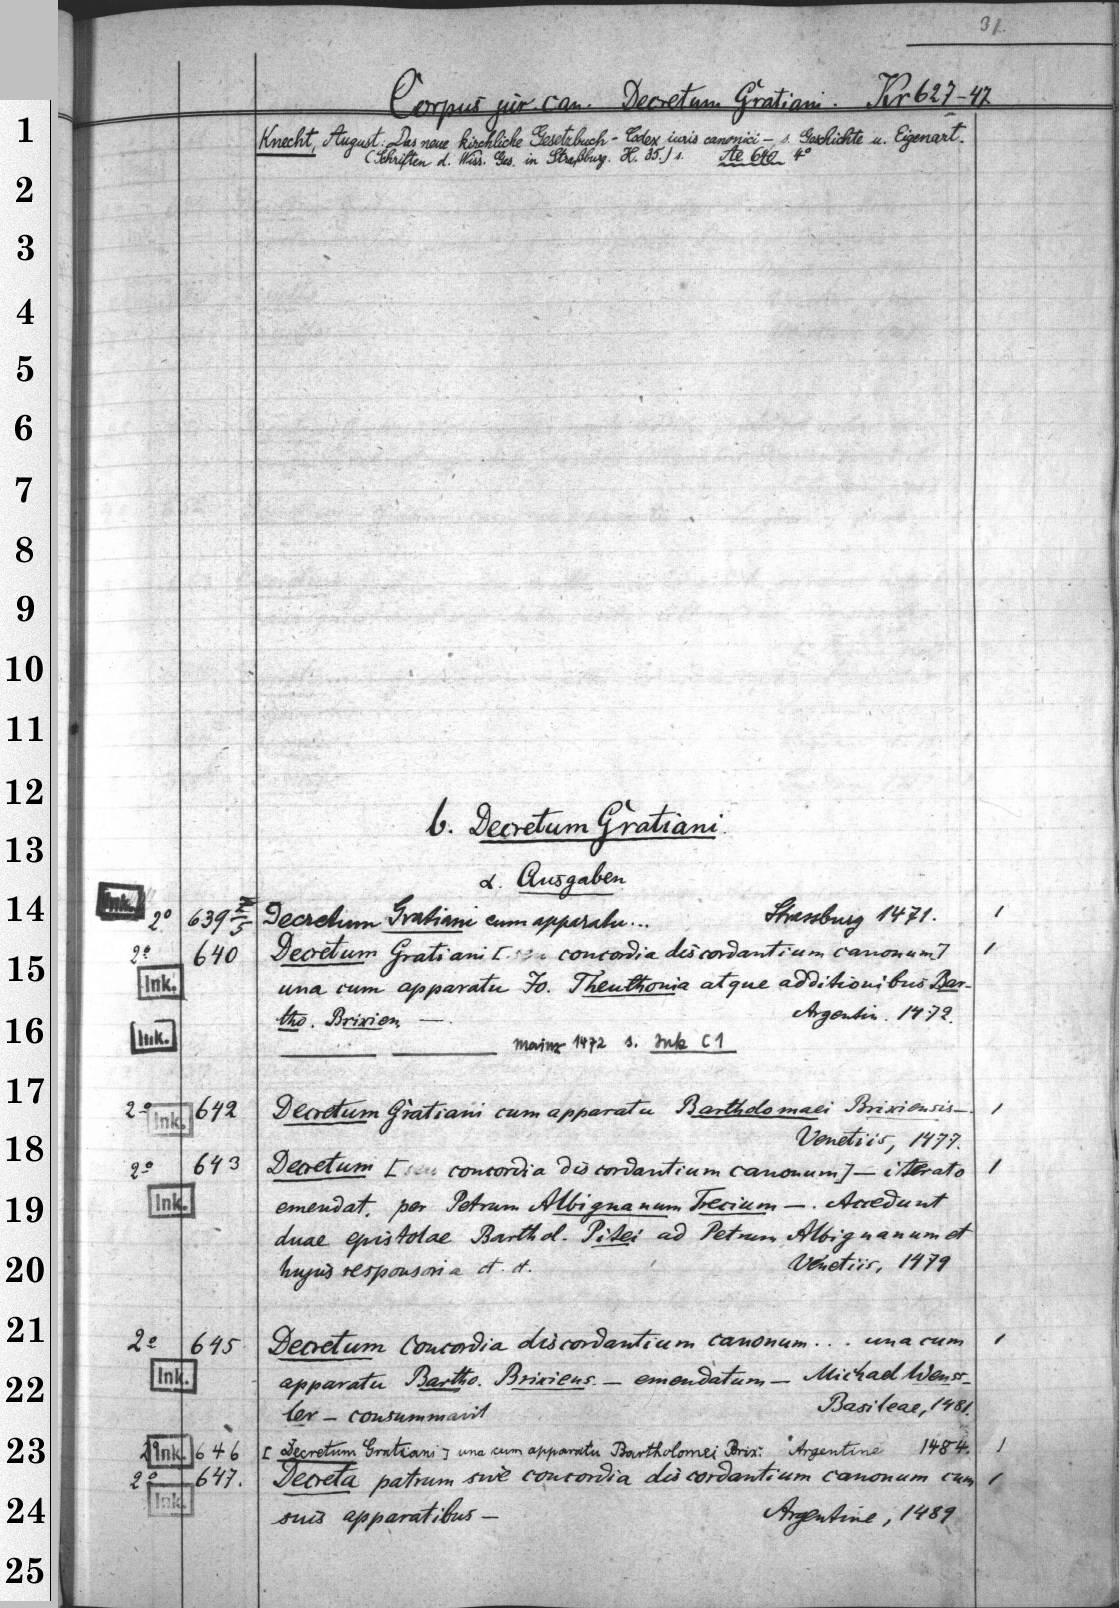 31.
Corpus jur. can. Decretum Gratiani. Kr 627-47
Knecht, August: Das neue kirchliche Gesetzbuch - Codex iuris canonici - s. Geschichte u. Eigenart.
(Schriften d. Wiss. Ges. in Straßburg. H. 35.) s. Ae 640 4°
b. Decretum Gratiani.
α. Ausgaben
Ink. 2° 639 Decretum Gratiani cum apparatu... Strassburg 1471. 1
2° 640 Decretum Gratiani [seu concordia discordantium canonum] 1
Ink. una cum apparatu Jo. Theuthonia atque additionibus Bar-
tho. Brixien. —. Argentin. 1472.
Ink. Mainz 1472 s. Ink C1
2° 642 Decretum Gratiani cum apparatu Bartholomaei Brixiensis —. 1
Ink. Venetiis, 1477.
2° 643 Decretum [seu concordia discordantium canonum] — iterato 1
Ink. emendat. per Petrum Albignanum Trecium —. Accedunt
duae epistolae Barthol. Pisei ad Petrum Albignanum et
hujus responsoria et. et. Venetiis, 1479
2° 645 Decretum concordia discordantium canonum... una cum 1
Ink. apparatu Bartho. Brixiens. — emendatum — Michael Wenss-
ler — consummavit Basileae, 1481.
2° Ink. 646 [Decretum Gratiani] una cum apparatu Bartholomei Brix: Argentine 1484. 1
2° 647. Decreta patrum sive concordia discordantium canonum cum 1
Ink. suis apparatibus — Argentine, 1489
1
2
3
4
5
6
7
8
9
10
11
12
13
14
15
16
17
18
19
20
21
22
23
24
25